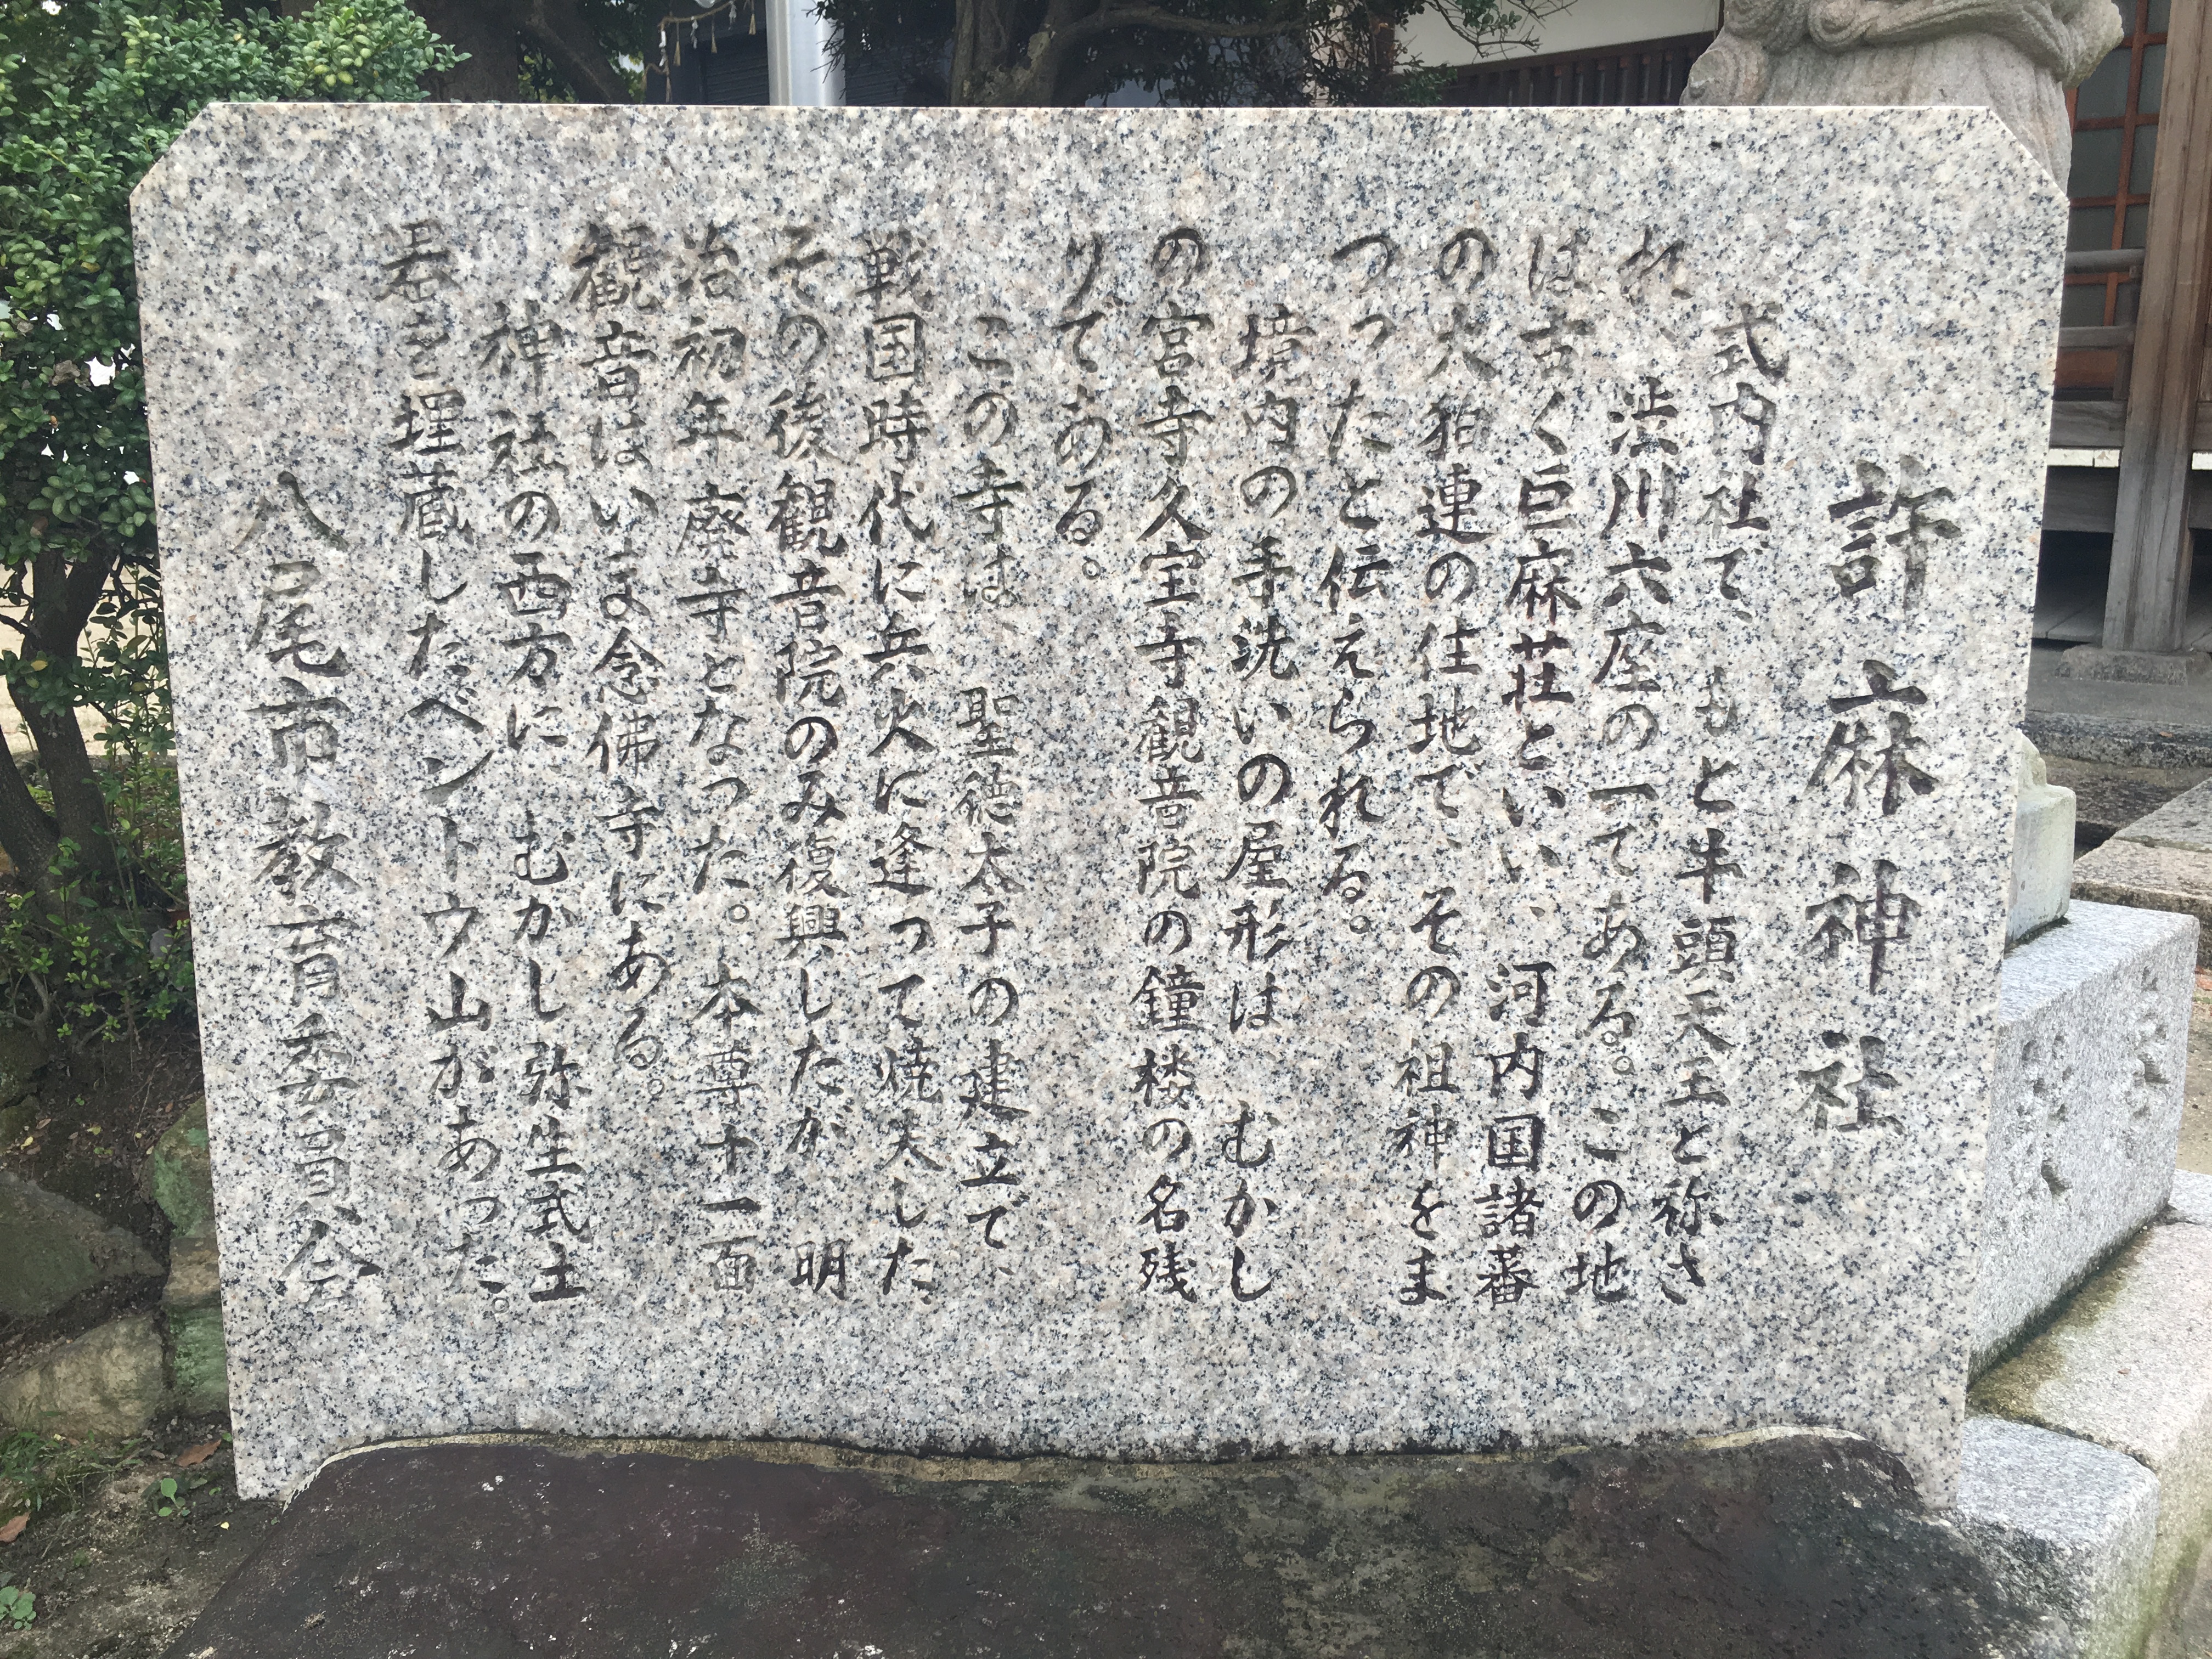 許麻神社
式内社で、もと牛頭天王と称さ
れ、渋川六座の一てある。この地
は古く巨麻荘といい、河内国諸蕃
の大狛連の住地で、その祖神をま
つったと伝えられる。
境内の手洗いの屋形は、むかし
の宮寺久宝寺観音院の鐘楼の名残
りである。
この寺は、聖徳太子の建立で、
戦国時代に兵火に逢って焼失した。
その後観音院のみ復興したが、明
治初年廃寺となった。本尊十一面
観音はいま念佛寺にある。
神社の西方に、むかし弥生式土
器を埋蔵したベントウ山があった。
八尾市教育委員会